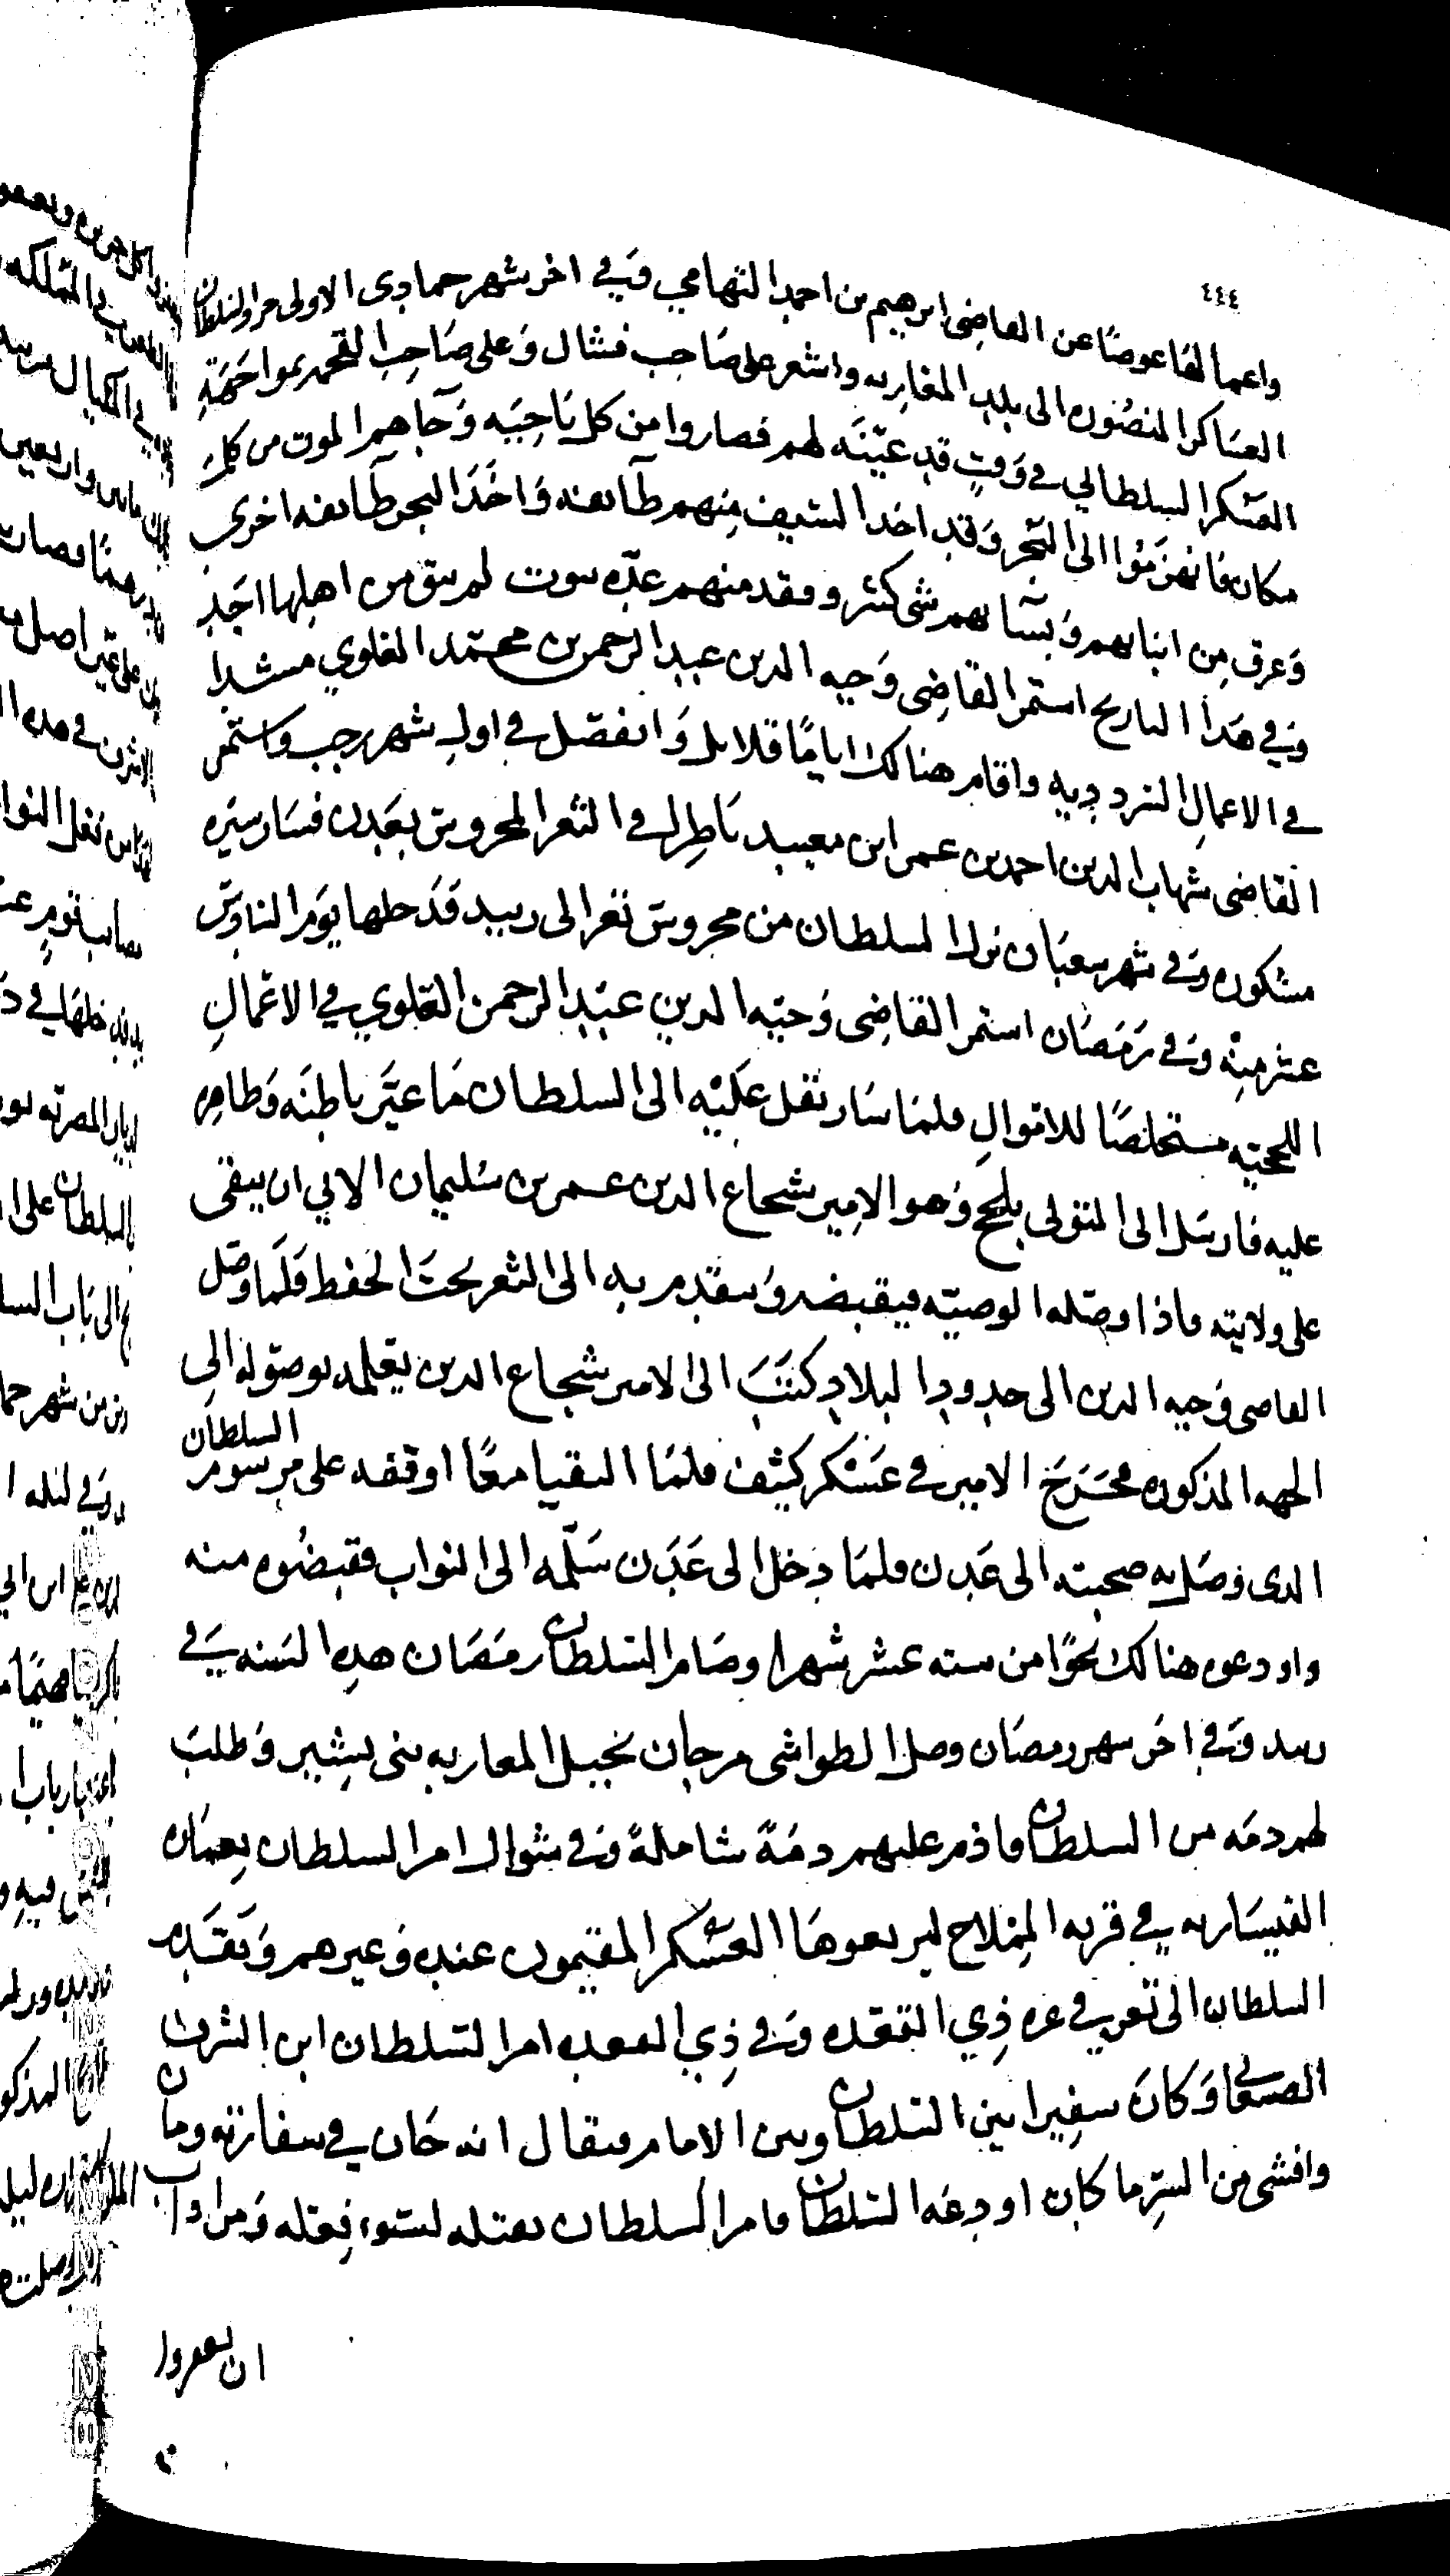 ٤٤٤
واعمالها عوضًا عن القاضى ابرهيم بن احمد التهامي وفي اخر شهر حمادى الاولى السلطان
العساكر المنصوره الى بلد المغاربه واشعر على صاحب فشال وعلى صاحب القحمه بمواجهة
العسكر السلطاني في وقتٍ قد عيّنه لهم فصاروا من كل ناحيه وجاهم الموت من كل
مكان فانهزموا الى البحر وقد اخذ السيف منهم طآئفه واخذ البحر طآئفه اخرى
وغرق من ابنايهم ونسآيهم شى كثير وفقد منهم عدّه بيوت لم يبق من اهلها احد
وفي هذا التاريخ استمر القاضى وجيه الدين عبد الرحمن بن محمد العلوي مشدا
في الاعمال السرددیه واقام هنالك اياما قلايل وانفصل في اول شهر رجب واستمر
القاضى شهاب الدين احمد بن عمر ابن معيبد ناظرا في الثغر المحروس بعدن فسار سيره
مشكوره وفي شهر شعبان نزل السلطان من محروس تعز الى زبيد فدخلها يوم السادس
عشر منه وفي رمضان استمر القاضى وجيه الدين عبد الرحمن العلوي في الاعمال
اللحجيه مستخلصًا للاموال فلما سار نقل عليه الى السلطان ما غيّر باطنه وظاهره
عليه فارسل الى المتولى بلحج وهو الامير شجاع الدين عمر بن سليمان الابي ان يبقى
على ولايته فاذا وصله الوصيه فيقبضه ويتقدم به الى الثغر تحت الحفظ فلما وصل
القاضى وجيه الدين الى حدود البلاد كتب الى الامير شجاع الدين يعلمه بوصوله الى
الجهه المذكوره فخرج الامير في عسكر كثيف فلما التقيا معًا اوقفه على مرسوم السلطان
الذى وصل به صحبته الى عدن فلما دخل الى عدن سلّمه الى النواب فقبضوه منه
واودعوه هنالك نحوًا من سته عشر شهرا وصام السلطان رمضان هذه السنه في
زبيد وفي اخر شهر رمضان وصل الطواشى مرجان بخيل المعازبه بنى بشير وطلب
لهم ذمه من السلطان فاذم عليهم ذمّةً شاملةً وفي شوال امر السلطان بعمارة
القيساريه في قريه المملاح ليربعوها العسكر المقيمون عنده وغيرهم وتقدم
السلطان الى تعز في غره ذي القعده وفي ذي القعده امر السلطان ابن الشرف
الصنعاني وكان سفيرا بين السلطان وبين الامام فيقال انه خان في سفارته وما
وافشى من السّر ما كان اودعه السلطان فامر السلطان بقتله لسوء فعله ومن اداب
ان يعفروا